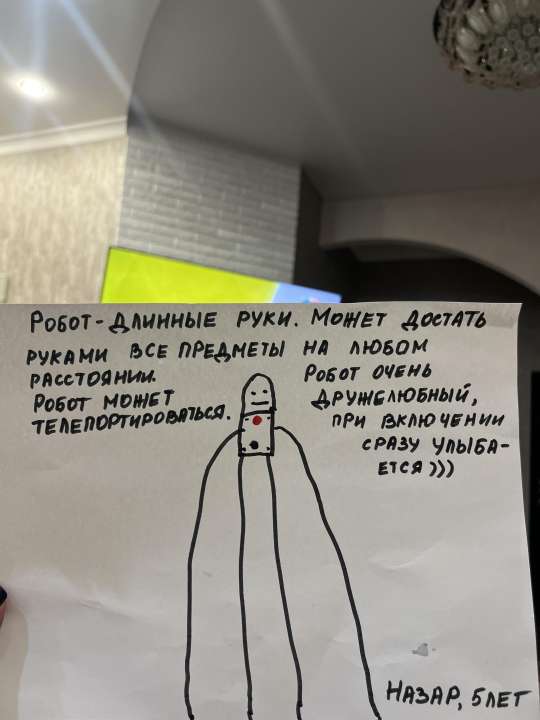 РОБОТ-ДЛИННЫЕ РУКИ. МОЖЕТ ДОСТАТЬ
РУКАМИ ВСЕ ПРЕДМЕТЫ НА ЛЮБОМ
РАССТОЯНИИ.
РОБОТ МОЖЕТ
ТЕЛЕПОРТИРОВАТЬСЯ.
РОБОТ ОЧЕНЬ
ДРУЖЕЛЮБНЫЙ,
ПРИ ВКЛЮЧЕНИИ
СРАЗУ УЛЫБА-
ЕТСЯ)))
НАЗАР, 5ЛЕТ